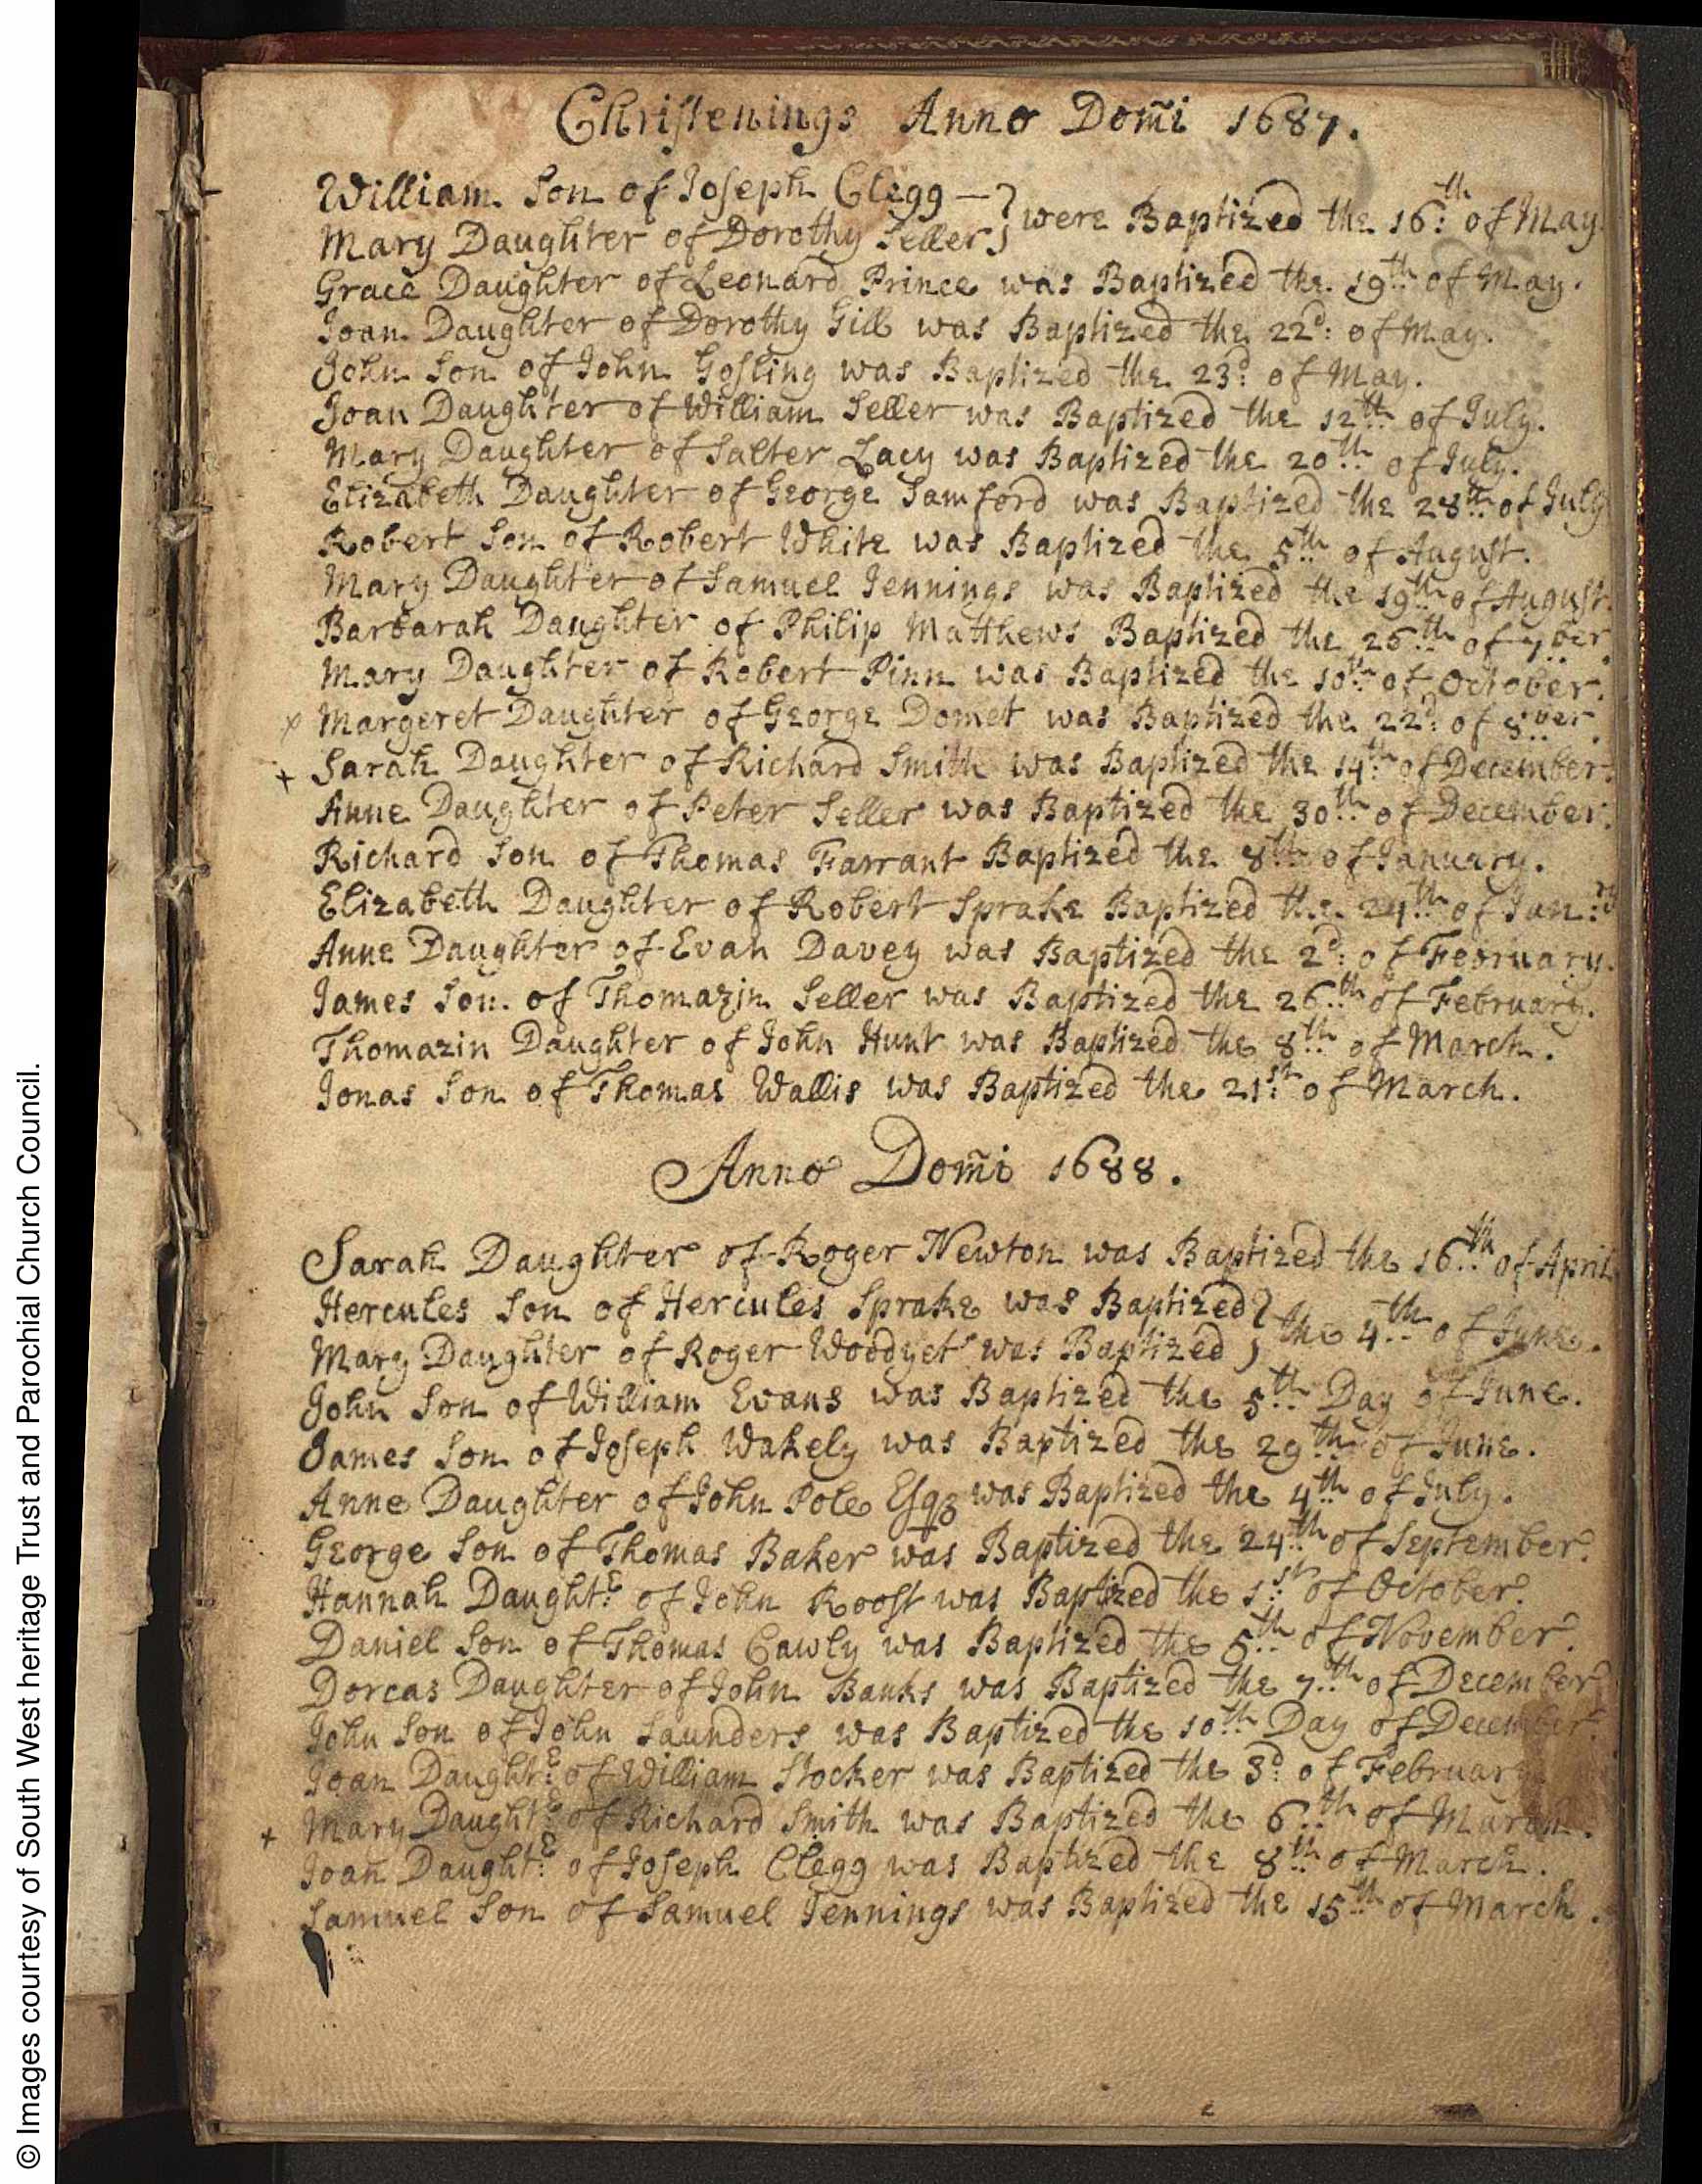 Christenings Anno Dom̃i 1687.
William Son of Joseph Clegg —
Mary Daughter of Dorothy Seller } were Baptized the 16:th of May.
Grace Daughter of Leonard Prince was Baptized the 19th of May.
Joan Daughter of Dorothy Gill was Baptized the 22d: of May.
John Son of John Gosling was Baptized the 23d: of May.
Joan Daughter of William Seller was Baptized the 12th of July.
Mary Daughter of Salter Lacy was Baptized the 20th of July.
Elizabeth Daughter of George Samford was Baptized the 28th of July
Robert Son of Robert White was Baptized the 5th of August.
Mary Daughter of Samuel Jennings was Baptized the 19th of August.
Barbarah Daughter of Philip Matthews Baptized the 26th of 7ber.
Mary Daughter of Robert Pinn was Baptized the 10th of October.
x Margeret Daughter of George Domet was Baptized the 22d: of 8ber.
+ Sarah Daughter of Richard Smith was Baptized the 14th of December.
Anne Daughter of Peter Seller was Baptized the 30th of December.
Richard Son of Thomas Farrant Baptized the 8th of January.
Elizabeth Daughter of Robert Sprake Baptized the 24th of Jan:ry
Anne Daughter of Evah Davey was Baptized the 2d: of February.
James Son of Thomazin Seller was Baptized the 26th of February.
Thomazin Daughter of John Hunt was Baptized the 8th of March.
Jonas Son of Thomas Wallis was Baptized the 21:st of March.
Anno Dom̃i 1688.
Sarah Daughter of Roger Newton was Baptized the 16th of April
Hercules Son of Hercules Sprake was Baptized
Mary Daughter of Roger Woodyet was Baptized } the 4th of June.
John Son of William Evans was Baptized the 5th Day of June.
James Son of Joseph Wakely was Baptized the 29th of June.
Anne Daughter of John Pole Esqr was Baptized the 4th of July.
George Son of Thomas Baker was Baptized the 24th of September.
Hannah Daught:r of John Roost was Baptized the 1:st of October.
Daniel Son of Thomas Cawly was Baptized the 5th of November.
Dorcas Daughter of John Banks was Baptized the 7th of December
John Son of John Saunders was Baptized the 10th Day of December.
Joan Daught:r of William Stocker was Baptized the 3d: of February
+ Mary Daught:r of Richard Smith was Baptized the 6th of March.
Joan Daught:r of Joseph Clegg was Baptized the 8th of March.
Samuel Son of Samuel Jennings was Baptized the 15th of March.
© Images courtesy of South West heritage Trust and Parochial Church Council.